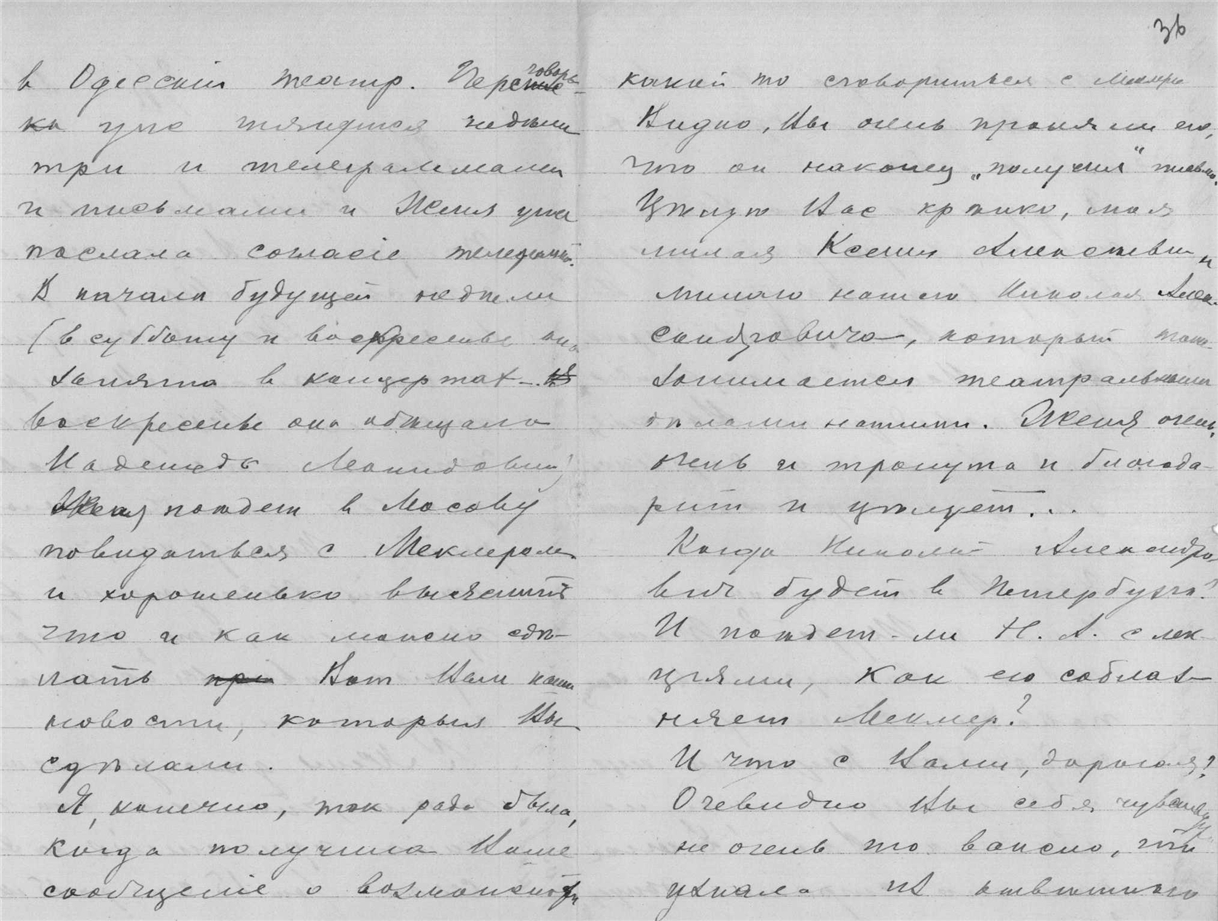 36
в Одесскiй театр. Перегово-
ры уже тянутся недели
три и телеграммами
и письмами и Женя уже
послала согласiе телеграф.
В начале будущей недели
(в субботу и воскресенье она
занята в концертах
воскресенье она обещала
Надежде Леонидовне)
Женя поедет в Москву
повидаться с Меклером
и хорошенько выяснит
что и как можно сде-
лать Вот Вам наши
новости, которыя Вы
сделали.
Я, конечно, так рада была,
когда получила Ваше
сообщенiе о возможности
какой то сговориться с Меклером
Видно, Вы очень проняли его,
что он наконец „получил" письмо.
Целую Вас крепко, моя
милая Ксения Алексеевна и
милаго нашего Николая Алек-
сандровича, который так
занимается театральными
делами нашими. Женя очень,
очень и тронута и благода-
рит и целует...
Когда Николай Александро-
вич будет в Петербурге?
И поедет-ли Н. А. с лек-
циями, как его соблаз-
няет Меклер?
И что с Вами, дорогая?
Очевидно Вы себя чувствуете
не очень то важно, что
узнала из ответного